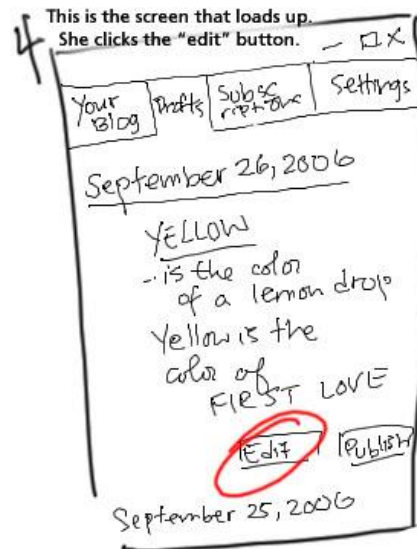 4 This is the screen that loads up.
She clicks the "edit" button.
Your Blog Drafts Subsc riptions Settings
September 26, 2006
YELLOW
... is the color
of a lemon drop
Yellow is the
color of
FIRST LOVE
Edit Publish
September 25, 2006